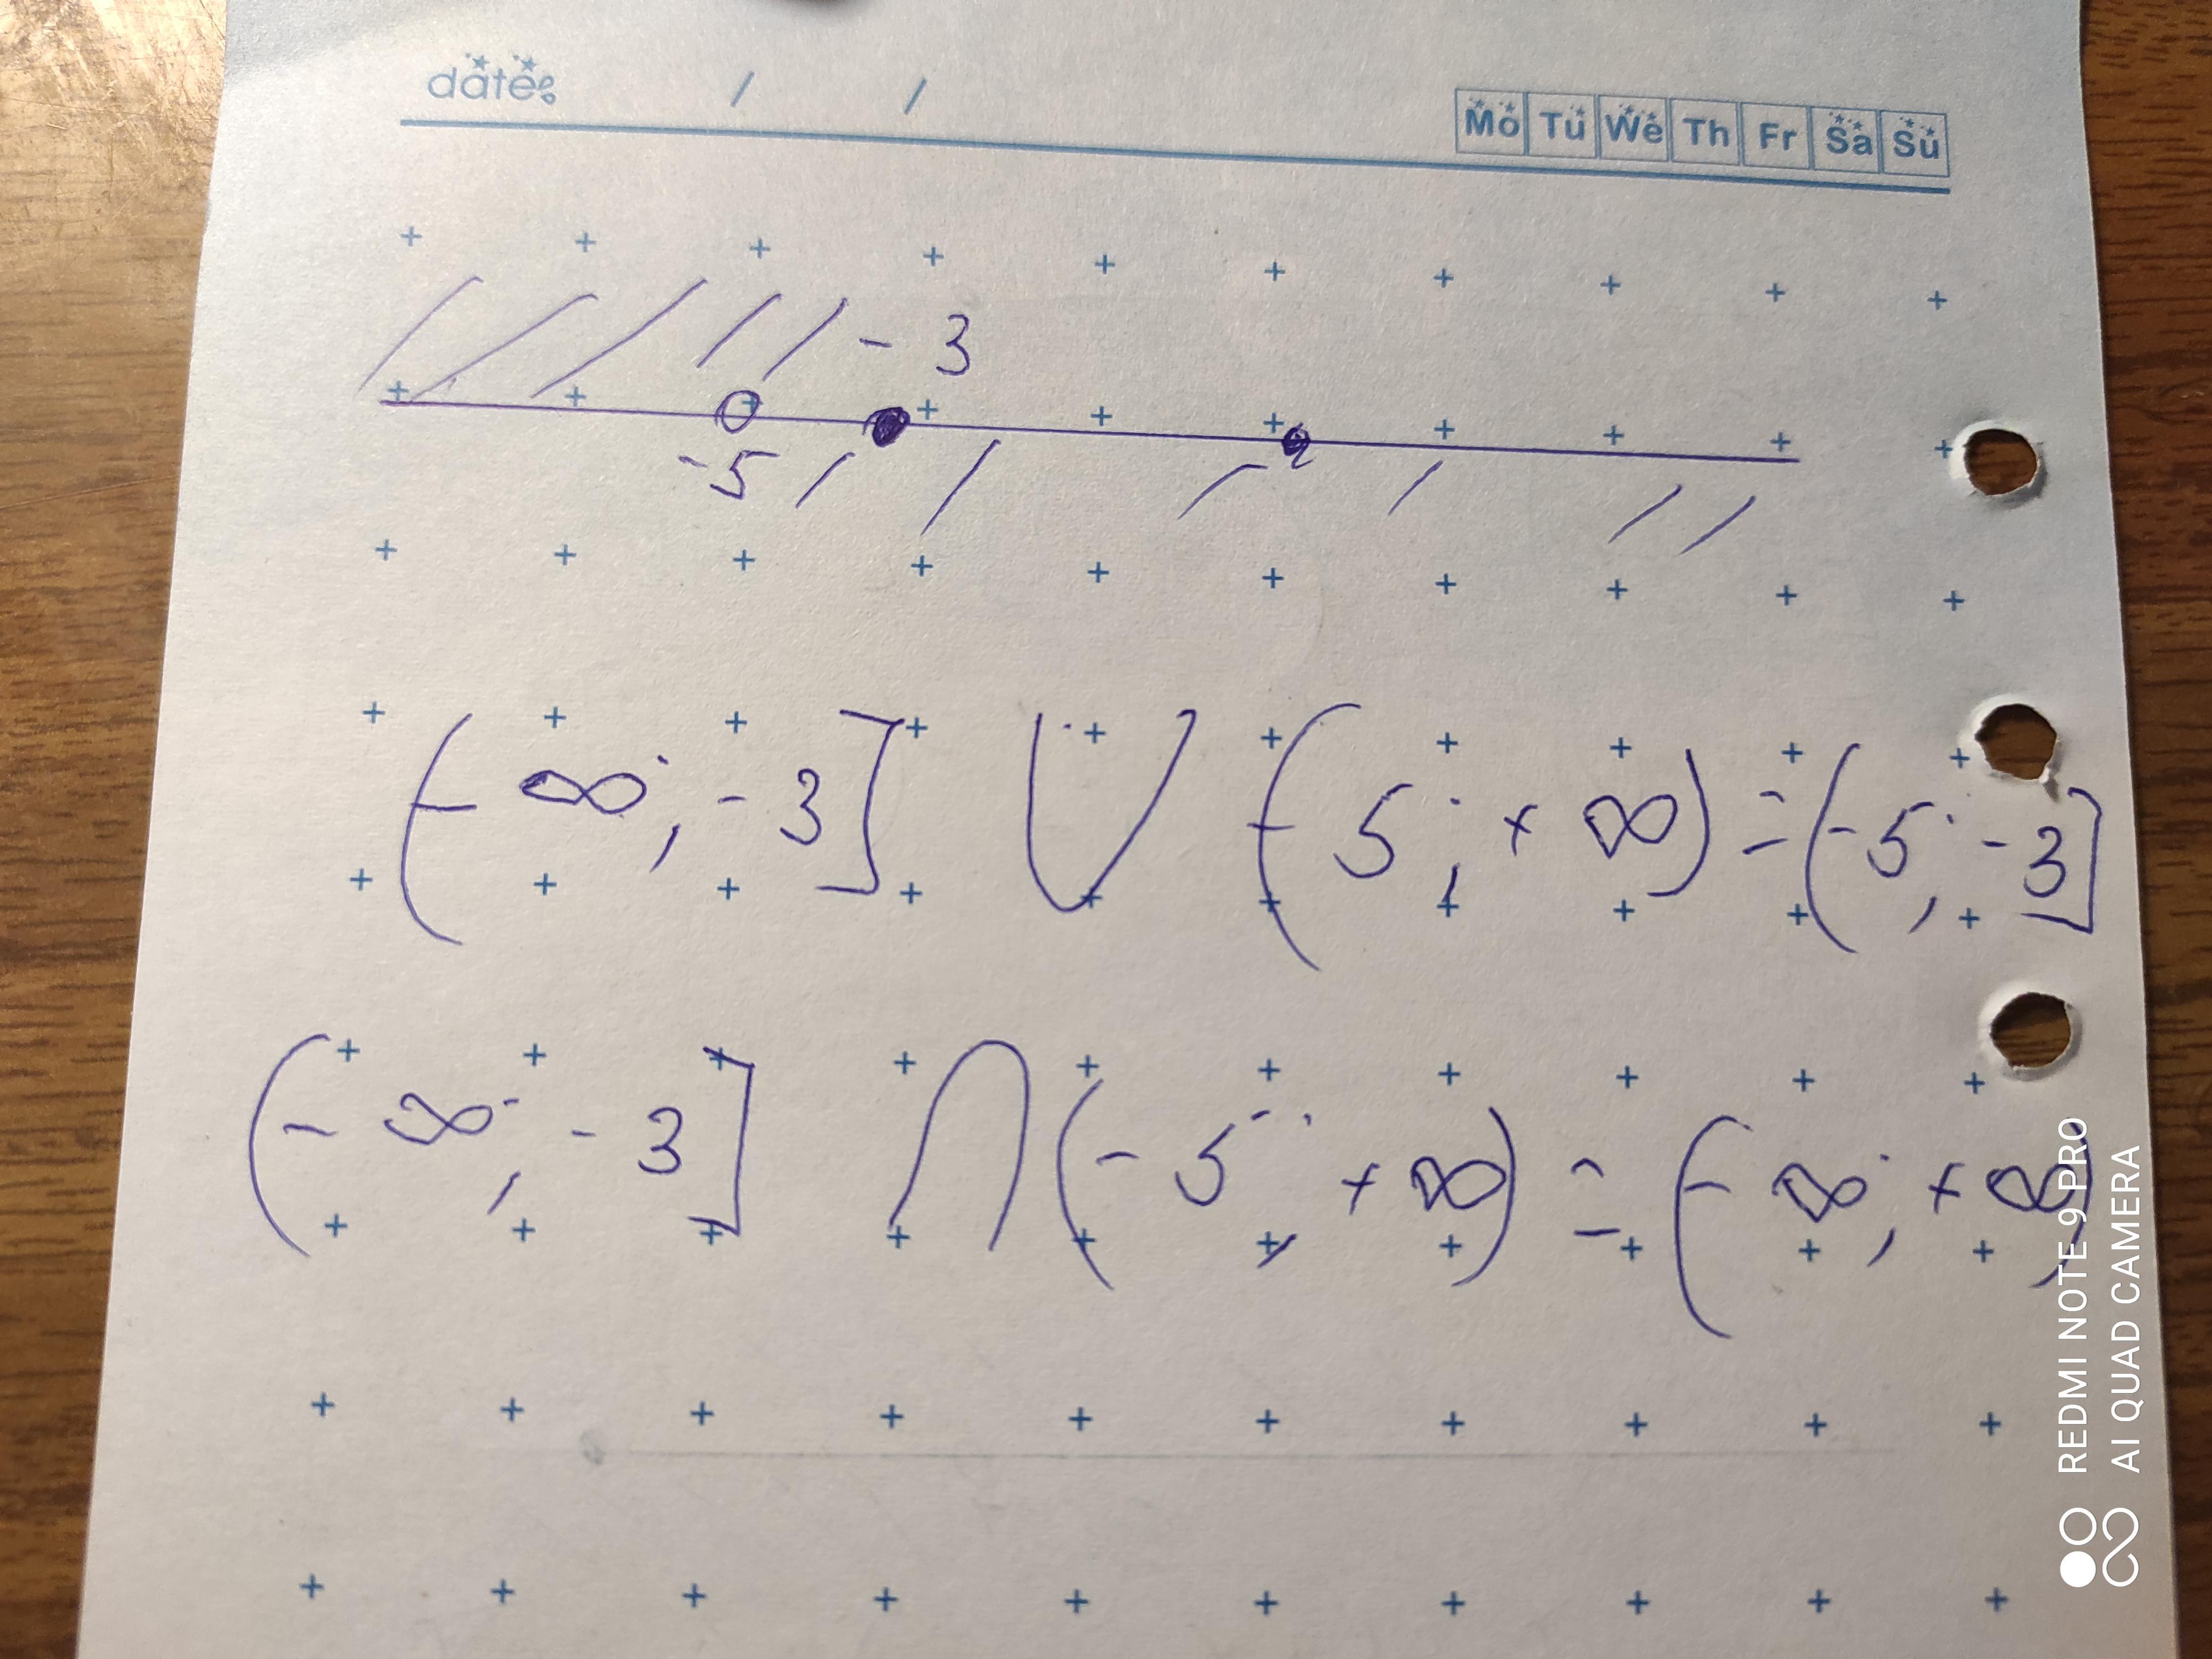 date: / /
Mo Tu We Th Fr Sa Su
- 3
-5
(-∞; -3] ∪ (-5; +∞) = (-5; -3]
(-∞; -3] ∩ (-5; +∞) = (-∞; +∞)
REDMI NOTE 9 PRO
AI QUAD CAMERA